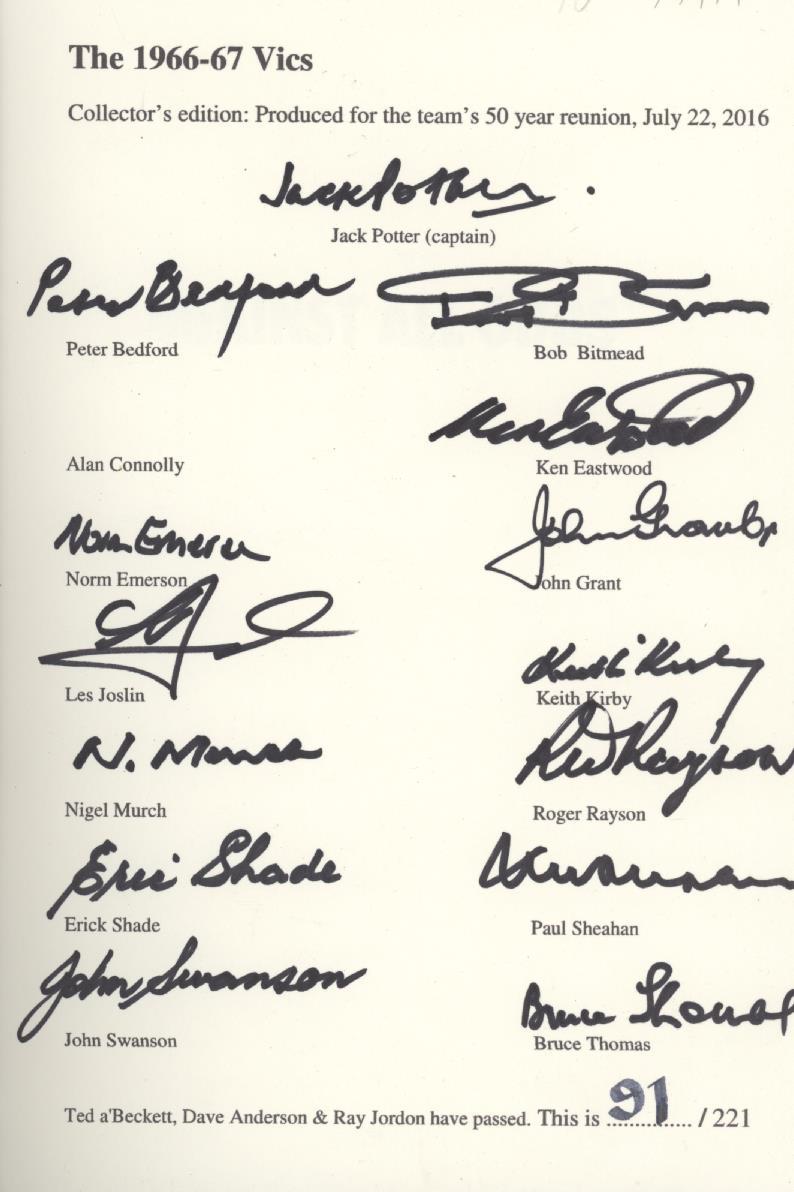 The 1966-67 Vics
Collector's edition: Produced for the team's 50 year reunion, July 22, 2016
Jack Potter
Jack Potter (captain)
Peter Bedford
Peter Bedford Bob Bitmead
Ken Eastwood
Alan Connolly Ken Eastwood
Norm Emerson John Grant
Norm Emerson John Grant
Les Joslin Keith Kirby
Keith Kirby
N. Murch RW Rayson
Nigel Murch Roger Rayson
Eric Shade
Erick Shade Paul Sheahan
John Swanson Bruce Thomas
John Swanson Bruce Thomas
Ted a'Beckett, Dave Anderson & Ray Jordon have passed. This is 91 / 221